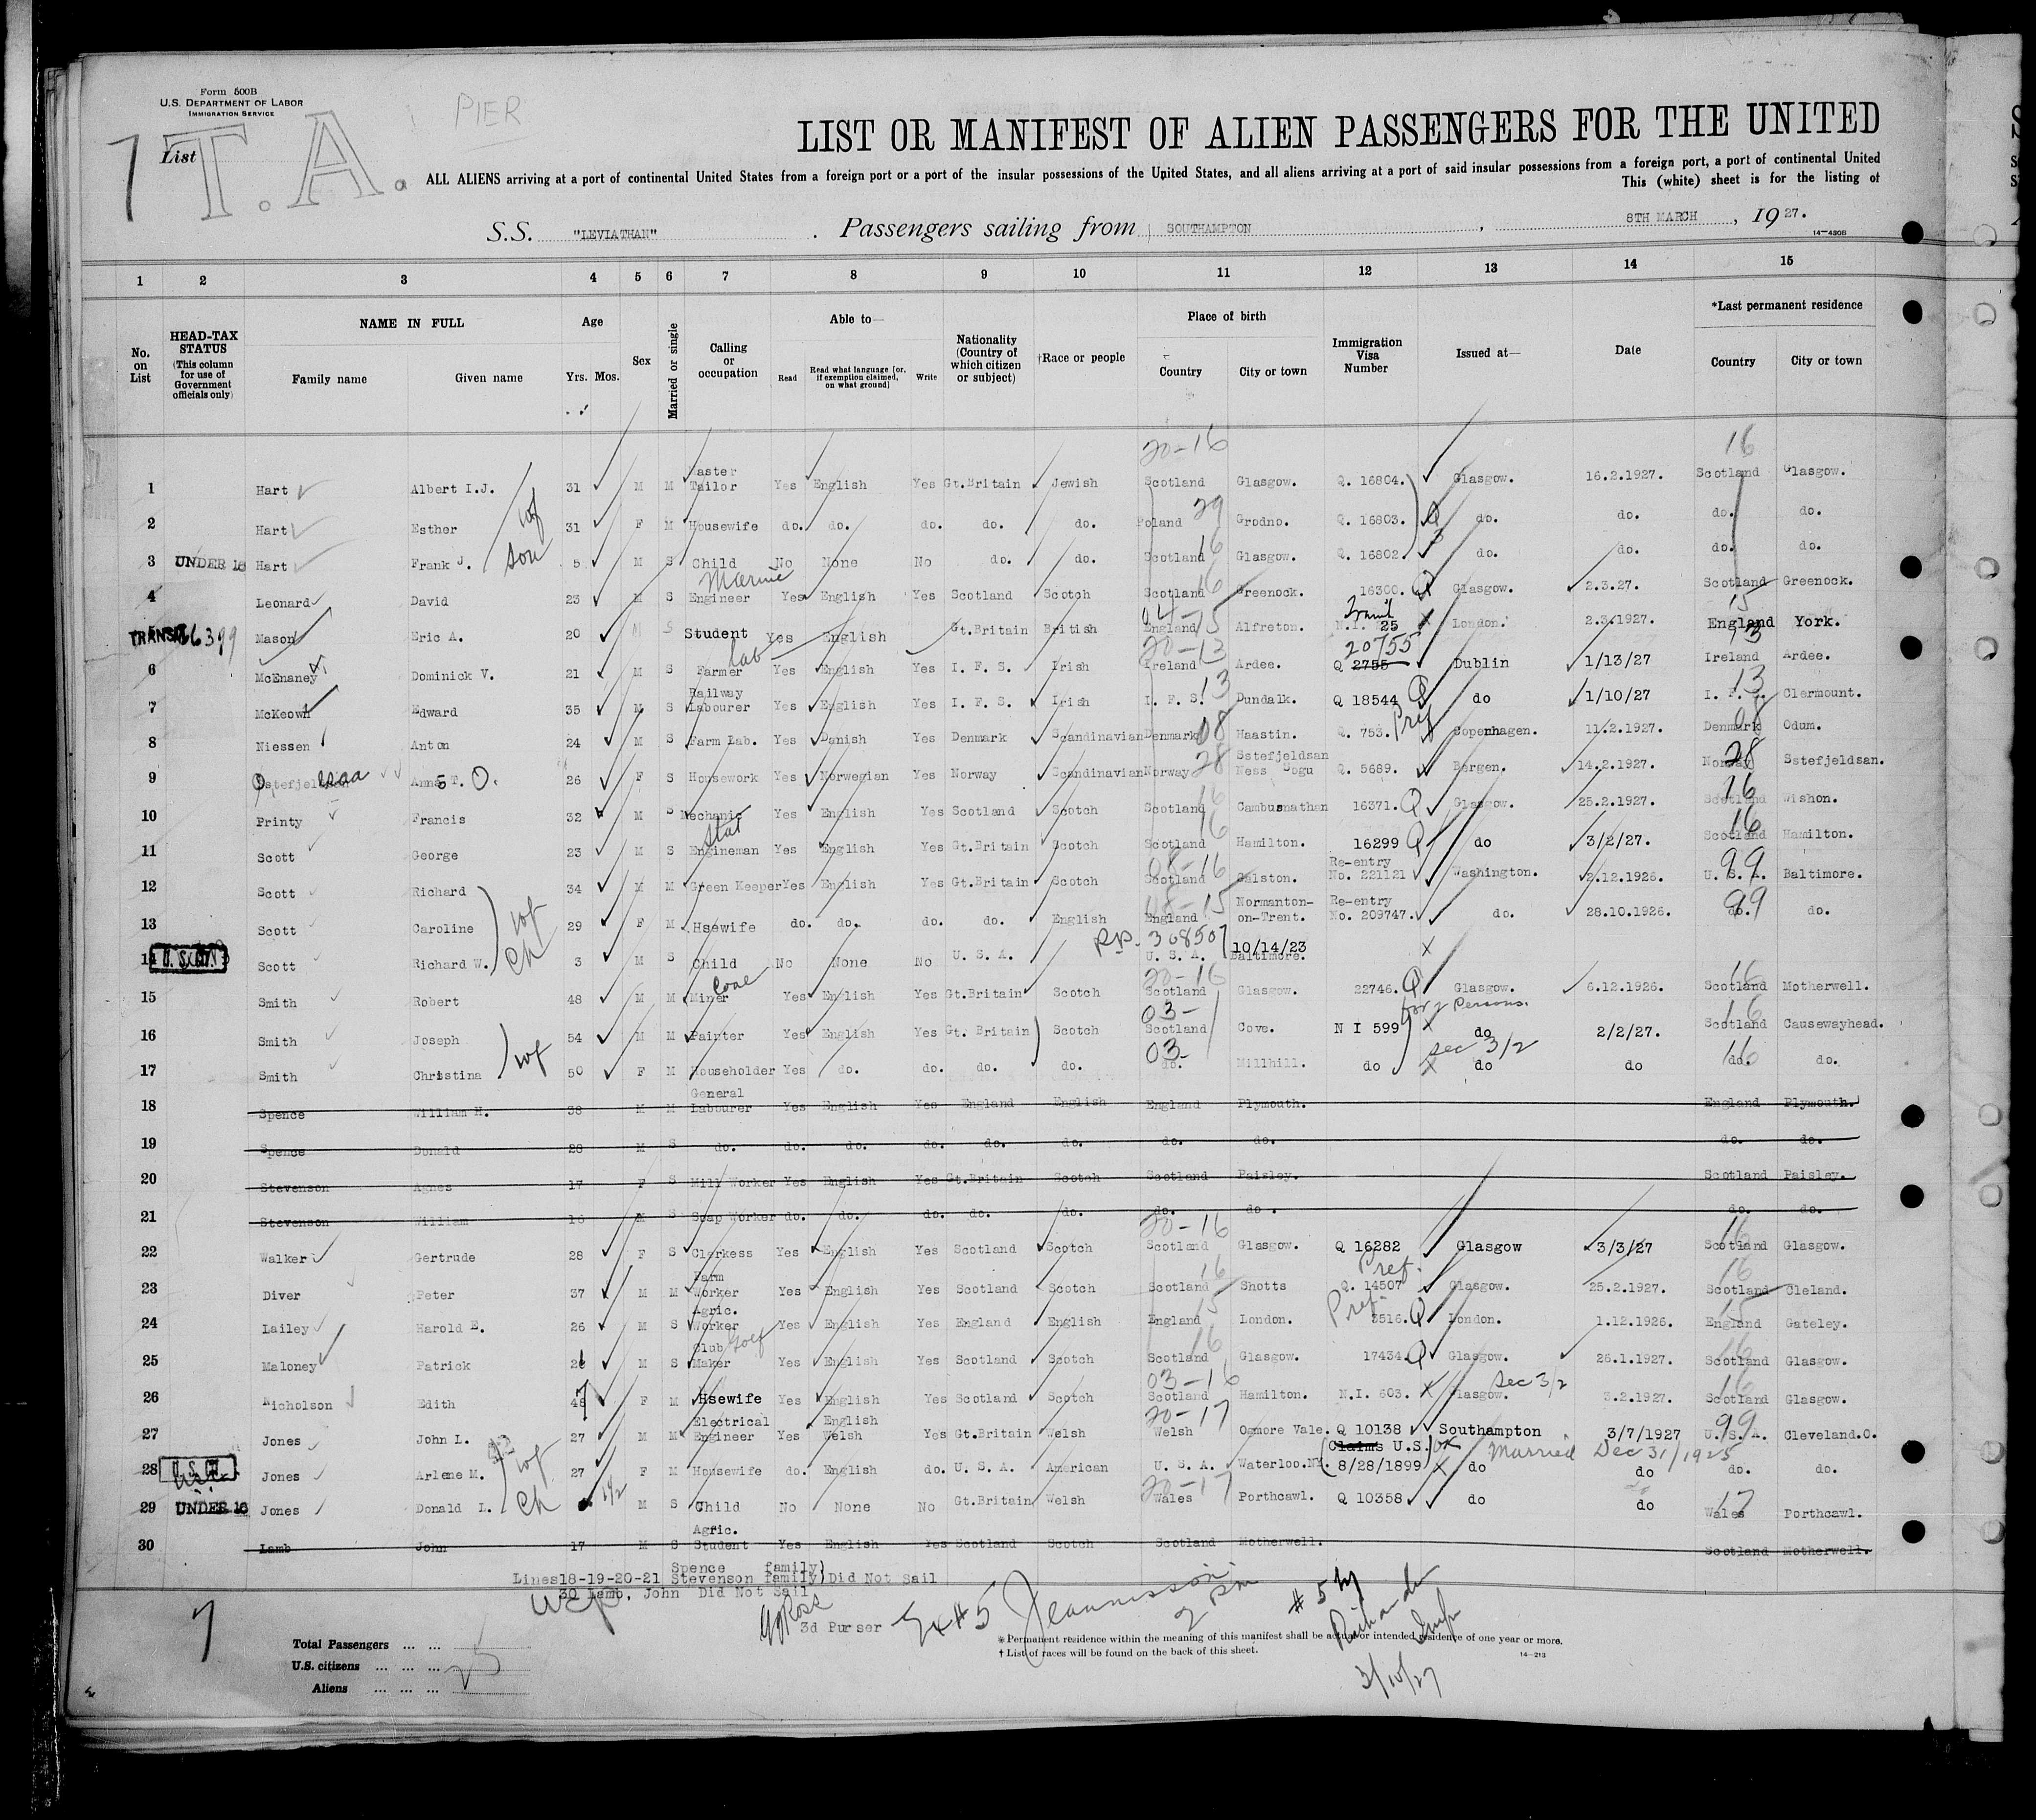 Form 500B
U.S. DEPARTMENT OF LABOR
IMMIGRATION SERVICE
PIER
List
7 T.A.
LIST OR MANIFEST OF ALIEN PASSENGERS FOR THE UNITED
ALL ALIENS arriving at a port of continental United States from a foreign port or a port of the insular possessions of the United States, and all aliens arriving at a port of said insular possessions from a foreign port, a port of continental United
This (white) sheet is for the listing of
S.S. "LEVIATHAN" . Passengers sailing from SOUTHAMPTON , 8TH MARCH , 19 27.
14-430B
1 2 3 4 5 6 7 8 9 10 11 12 13 14 15
No. on List
HEAD-TAX STATUS (This column for use of Government officials only)
NAME IN FULL Family name Given name
Age Yrs. Mos.
Sex
Married or single
Calling or occupation
Able to— Read Read what language [or, if exemption claimed, on what ground] Write
Nationality (Country of which citizen or subject)
†Race or people
Place of birth Country City or town
Immigration Visa Number
Issued at—
Date
*Last permanent residence Country City or town
20-16 16
1 Hart Albert I.J. 31 M M Master Tailor Yes English Yes Gt.Britain Jewish Scotland Glasgow. Q. 16804. Glasgow. 16.2.1927. Scotland Glasgow.
2 Hart Esther wf 31 F M Housewife do. do. do. do. do. Poland 29 Grodno. Q. 16803. Q do. do. do. do.
3 UNDER 16 Hart Frank J. son 5 M S Child No None No do. do. Scotland 16 Glasgow. Q. 16802. do. do. do. do.
4 Leonard David 23 M S Marine Engineer Yes English Yes Scotland Scotch Scotland 16 Greenock. 16300. Q Glasgow. 2.3.27. Scotland Greenock.
TRANSIT 36399 Mason Eric A. 20 M S Student Yes English Gt.Britain British England 04-15 Alfreton. Transit N.I. 25 London. 2.3.1927. England 15 York.
6 McEnaney Dominick V. 21 M S Farmer Lab Yes English Yes I. F. S. Irish Ireland 20-13 Ardee. Q 2755 20755 Dublin 1/13/27 Ireland 13 Ardee.
7 McKeown Edward 35 M S Railway Labourer Yes English Yes I. F. S. Irish I. F. S. 13 Dundalk. Q 18544 Q do 1/10/27 I. F. S. 13 Clermount.
8 Niessen Anton 24 M S Farm Lab. Yes Danish Yes Denmark Scandinavian Denmark 08 Haastin. Q. 753. Pref Copenhagen. 11.2.1927. Denmark 08 Odum.
9 Anna T. O. 26 F S Housework Yes Norwegian Yes Norway Scandinavian Norway 28 Sstefjeldsan Ness Sogu Q. 5689. Bergen. 14.2.1927. Norway 28 Sstefjeldsan.
10 Printy Francis 32 M S Mechanic Yes English Yes Scotland Scotch Scotland 16 Cambusnathen 16371. Q Glasgow. 25.2.1927. Scotland 16 Wishon.
11 Scott George 23 M S Stat Engineman Yes English Yes Gt.Britain Scotch Scotland 16 Hamilton. 16299 Q do 3/2/27. Scotland 16 Hamilton.
12 Scott Richard 34 M M Green Keeper Yes English Yes Gt.Britain Scotch Scotland 08-16 Galston. Re-entry No. 221121 Washington. 2.12.1926. U. S. A. 99 Baltimore.
13 Scott Caroline wf 29 F M Hsewife do. do. do. do. English England 08-15 Normanton-on-Trent. Re-entry No. 209747. do. 28.10.1926. do. 99 do.
14 Scott Richard W. Ch 3 M S Child No None No U. S. A. PP. 308507 U. S. A. 10/14/23 Baltimore. X
15 Smith Robert 48 M M Coal Miner Yes English Yes Gt.Britain Scotch Scotland 20-16 Glasgow. 22746. Q Glasgow. 6.12.1926. Scotland 16 Motherwell.
for 2 Persons.
16 Smith Joseph 54 M M Painter Yes English Yes Gt. Britain Scotch Scotland 03- Cove. N I 599 X do 2/2/27. Scotland 16 Causewayhead.
Sec 3/2
17 Smith Christina wf 50 F M Householder Yes do. do. do. do. do. 03- Millhill. do X do do do. 16 do.
18 Spence William H. 38 M M General Labourer Yes English Yes England English England Plymouth. England Plymouth.
19 Spence Donald 28 M S do. do. do. do. do. do. do. do. do. do.
20 Stevenson Agnes 17 F S Mill Worker Yes English Yes Gt.Britain Scotch Scotland Paisley. Scotland Paisley.
21 Stevenson William 16 M S Soap Worker do. do. do. do. do. do. do. do. do.
22 Walker Gertrude 28 F S Clerkess Yes English Yes Scotland Scotch Scotland 20-16 Glasgow. Q 16282 Glasgow 3/3/27 Scotland 16 Glasgow.
23 Diver Peter 37 M M Farm Worker Yes English Yes Scotland Scotch Scotland 16 Shotts Pref. Q. 14507 Glasgow. 25.2.1927. Scotland 16 Cleland.
24 Lailey Harold E. 26 M S Agric. Worker Yes English Yes England English England 15 London. Pref. 3516. Q London. 1.12.1926. England 15 Gateley.
25 Maloney Patrick M S Golf Club Maker Yes English Yes Scotland Scotch Scotland 16 Glasgow. 17434 Q Glasgow. 26.1.1927. Scotland 16 Glasgow.
26 Nicholson Edith F M Hsewife Yes English Yes Scotland Scotch Scotland 03-16 Hamilton. N.I. 603. X Glasgow. Sec 3/2 3.2.1927. Scotland 16 Glasgow.
27 Jones John L. 27 M M Electrical Engineer Yes English Welsh Yes Gt.Britain Welsh Welsh 20-17 Ogmore Vale. Q 10138 Southampton 3/7/1927 U. S. A. 99 Cleveland.O.
28 Jones Arlene M. wf 27 F M Housewife do. English do. U. S. A. American U. S. A. Waterloo.NY. Claims U.S. 8/28/1899 X do Married Dec 31/1925 do do. do.
29 UNDER 16 Jones Donald L. Ch M S Child No None No Gt.Britain Welsh Wales 20-17 Porthcawl. Q 10358 do do Wales 17 Porthcawl.
30 Lamb John 17 M S Agric. Student Yes English Yes Scotland Scotch Scotland Motherwell. Scotland Motherwell.
Spence family)
Lines18-19-20-21 Stevenson family)Did Not Sail
30 Lamb, John Did Not Sail
3d Purser
Ex #5 2 pm
#5
3/10/27
7
Total Passengers ... ...
U.S. citizens ... ... ...
Aliens ... ... ...
25
*Permanent residence within the meaning of this manifest shall be actual or intended residence of one year or more.
† List of races will be found on the back of this sheet.
14-213